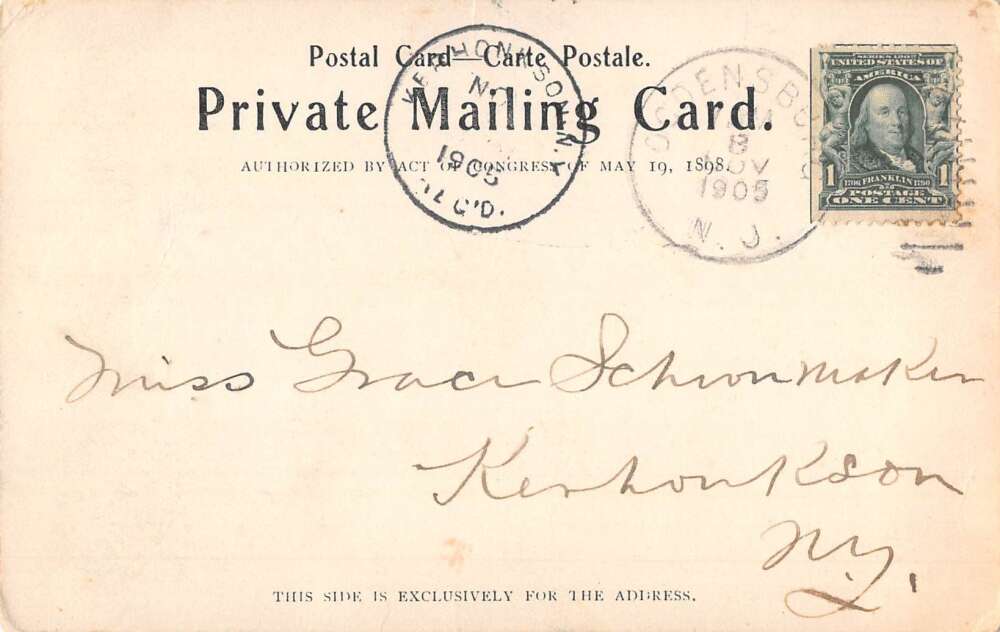 Postal Card—Carte Postale.
Private Mailing Card.
AUTHORIZED BY ACT OF CONGRESS OF MAY 19, 1898.
KERHONKSON N.Y.
N
1905
REC'D.
OGDENSBURG
8
NOV
1905
N. J.
SERIES 1902
UNITED STATES OF
AMERICA
1 1706 FRANKLIN 1790 1
POSTAGE
ONE CENT
Miss Grace Schoonmaker
Kerhonkson
N.Y.
THIS SIDE IS EXCLUSIVELY FOR THE ADDRESS.